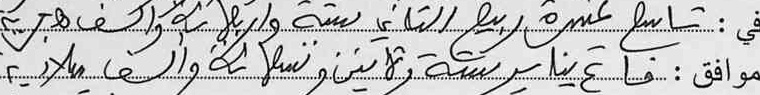 في : تاسع عشرة ربيع الثاني ستة واربعمائة وألف هجرية
موافق : فاتح يناير ستة وثمانين وتسعمائة وألف ميلادية